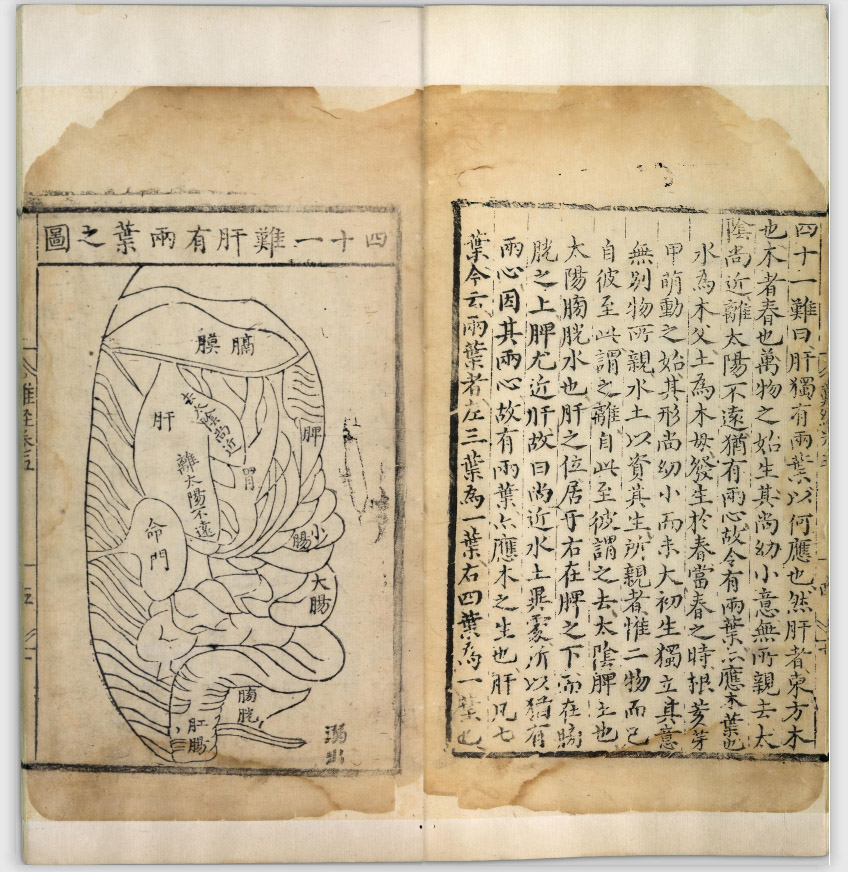 四十一難曰肝獨有兩葉以何應也然肝者東方木
也木者春也萬物之始生其尚幼小意無所親去太
陰尚近離太陽不遠猶有兩心故令有兩葉亦應木葉也
水為木父土為木母發生於春當春之時根荄芽
甲萌動之始其形尚幼小而未大初生獨立其意
無別物所親水土以資其生所親者惟二物而已
自彼至此謂之離自此至彼謂之去太陰脾土也
太陽膀胱水也肝之位居于右在脾之下而在膀
胱之上脾尤近肝故曰尚近水土異處所以猶有
兩心因其兩心故有兩葉亦應木之生也肝凡七
葉今云兩葉者左三葉為一葉右四葉為一葉也
四十一難肝有兩葉之圖
膈膜
肝
去太陰尚近
離太陽不遠
胃
脾
命門
小腸
大腸
膀胱
肛腸
溺出